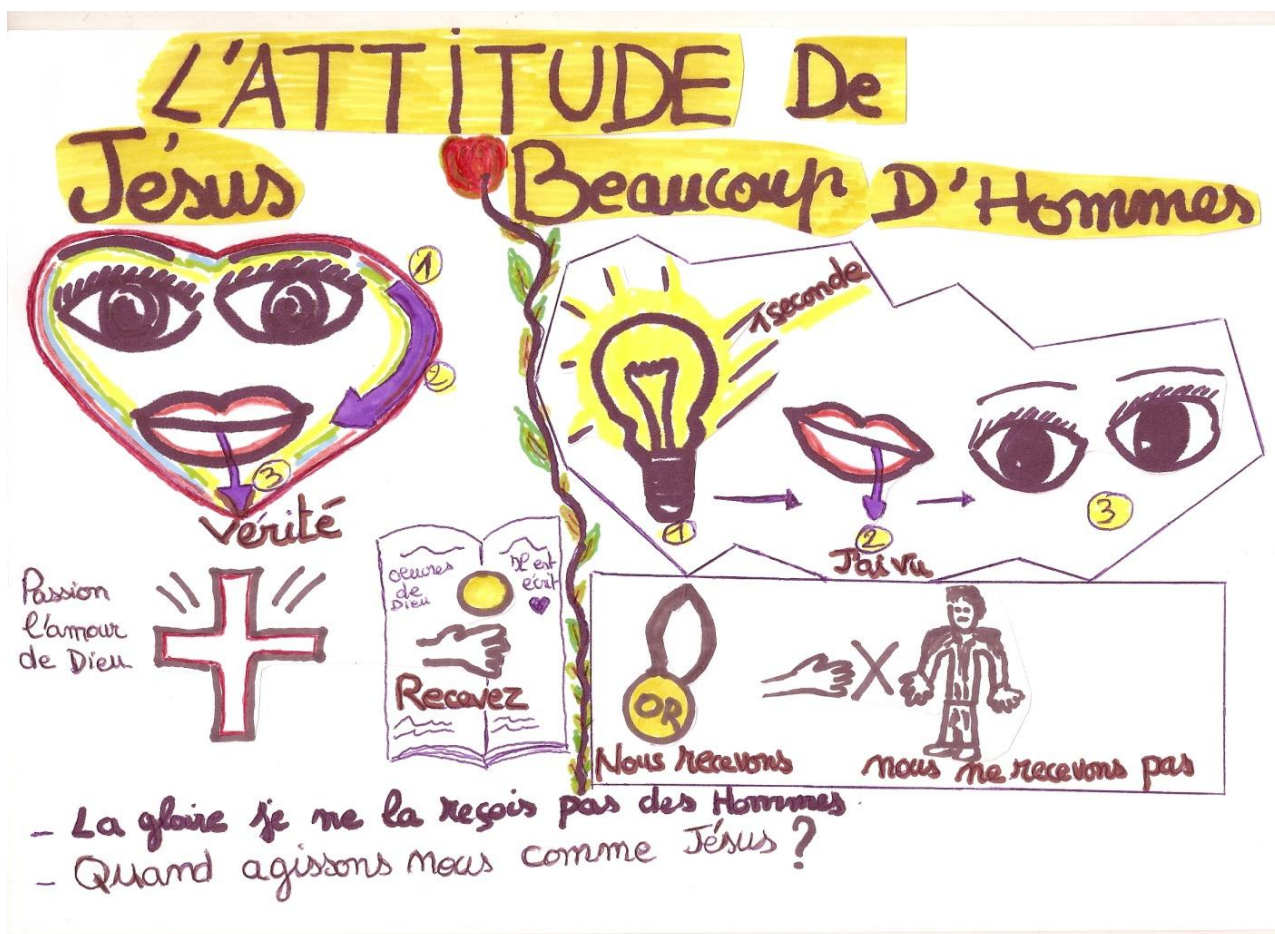 L'ATTITUDE De
Jésus
Beaucoup D'Hommes
1
2
3
Vérité
Passion
l'amour
de Dieu
oeuvres
de
Dieu
Il est
écrit
Recevez
1 seconde
1
2
J'ai vu
3
OR
Nous recevons
nous ne recevons pas
- La gloire je ne la reçois pas des Hommes.
- Quand agissons nous comme Jésus ?